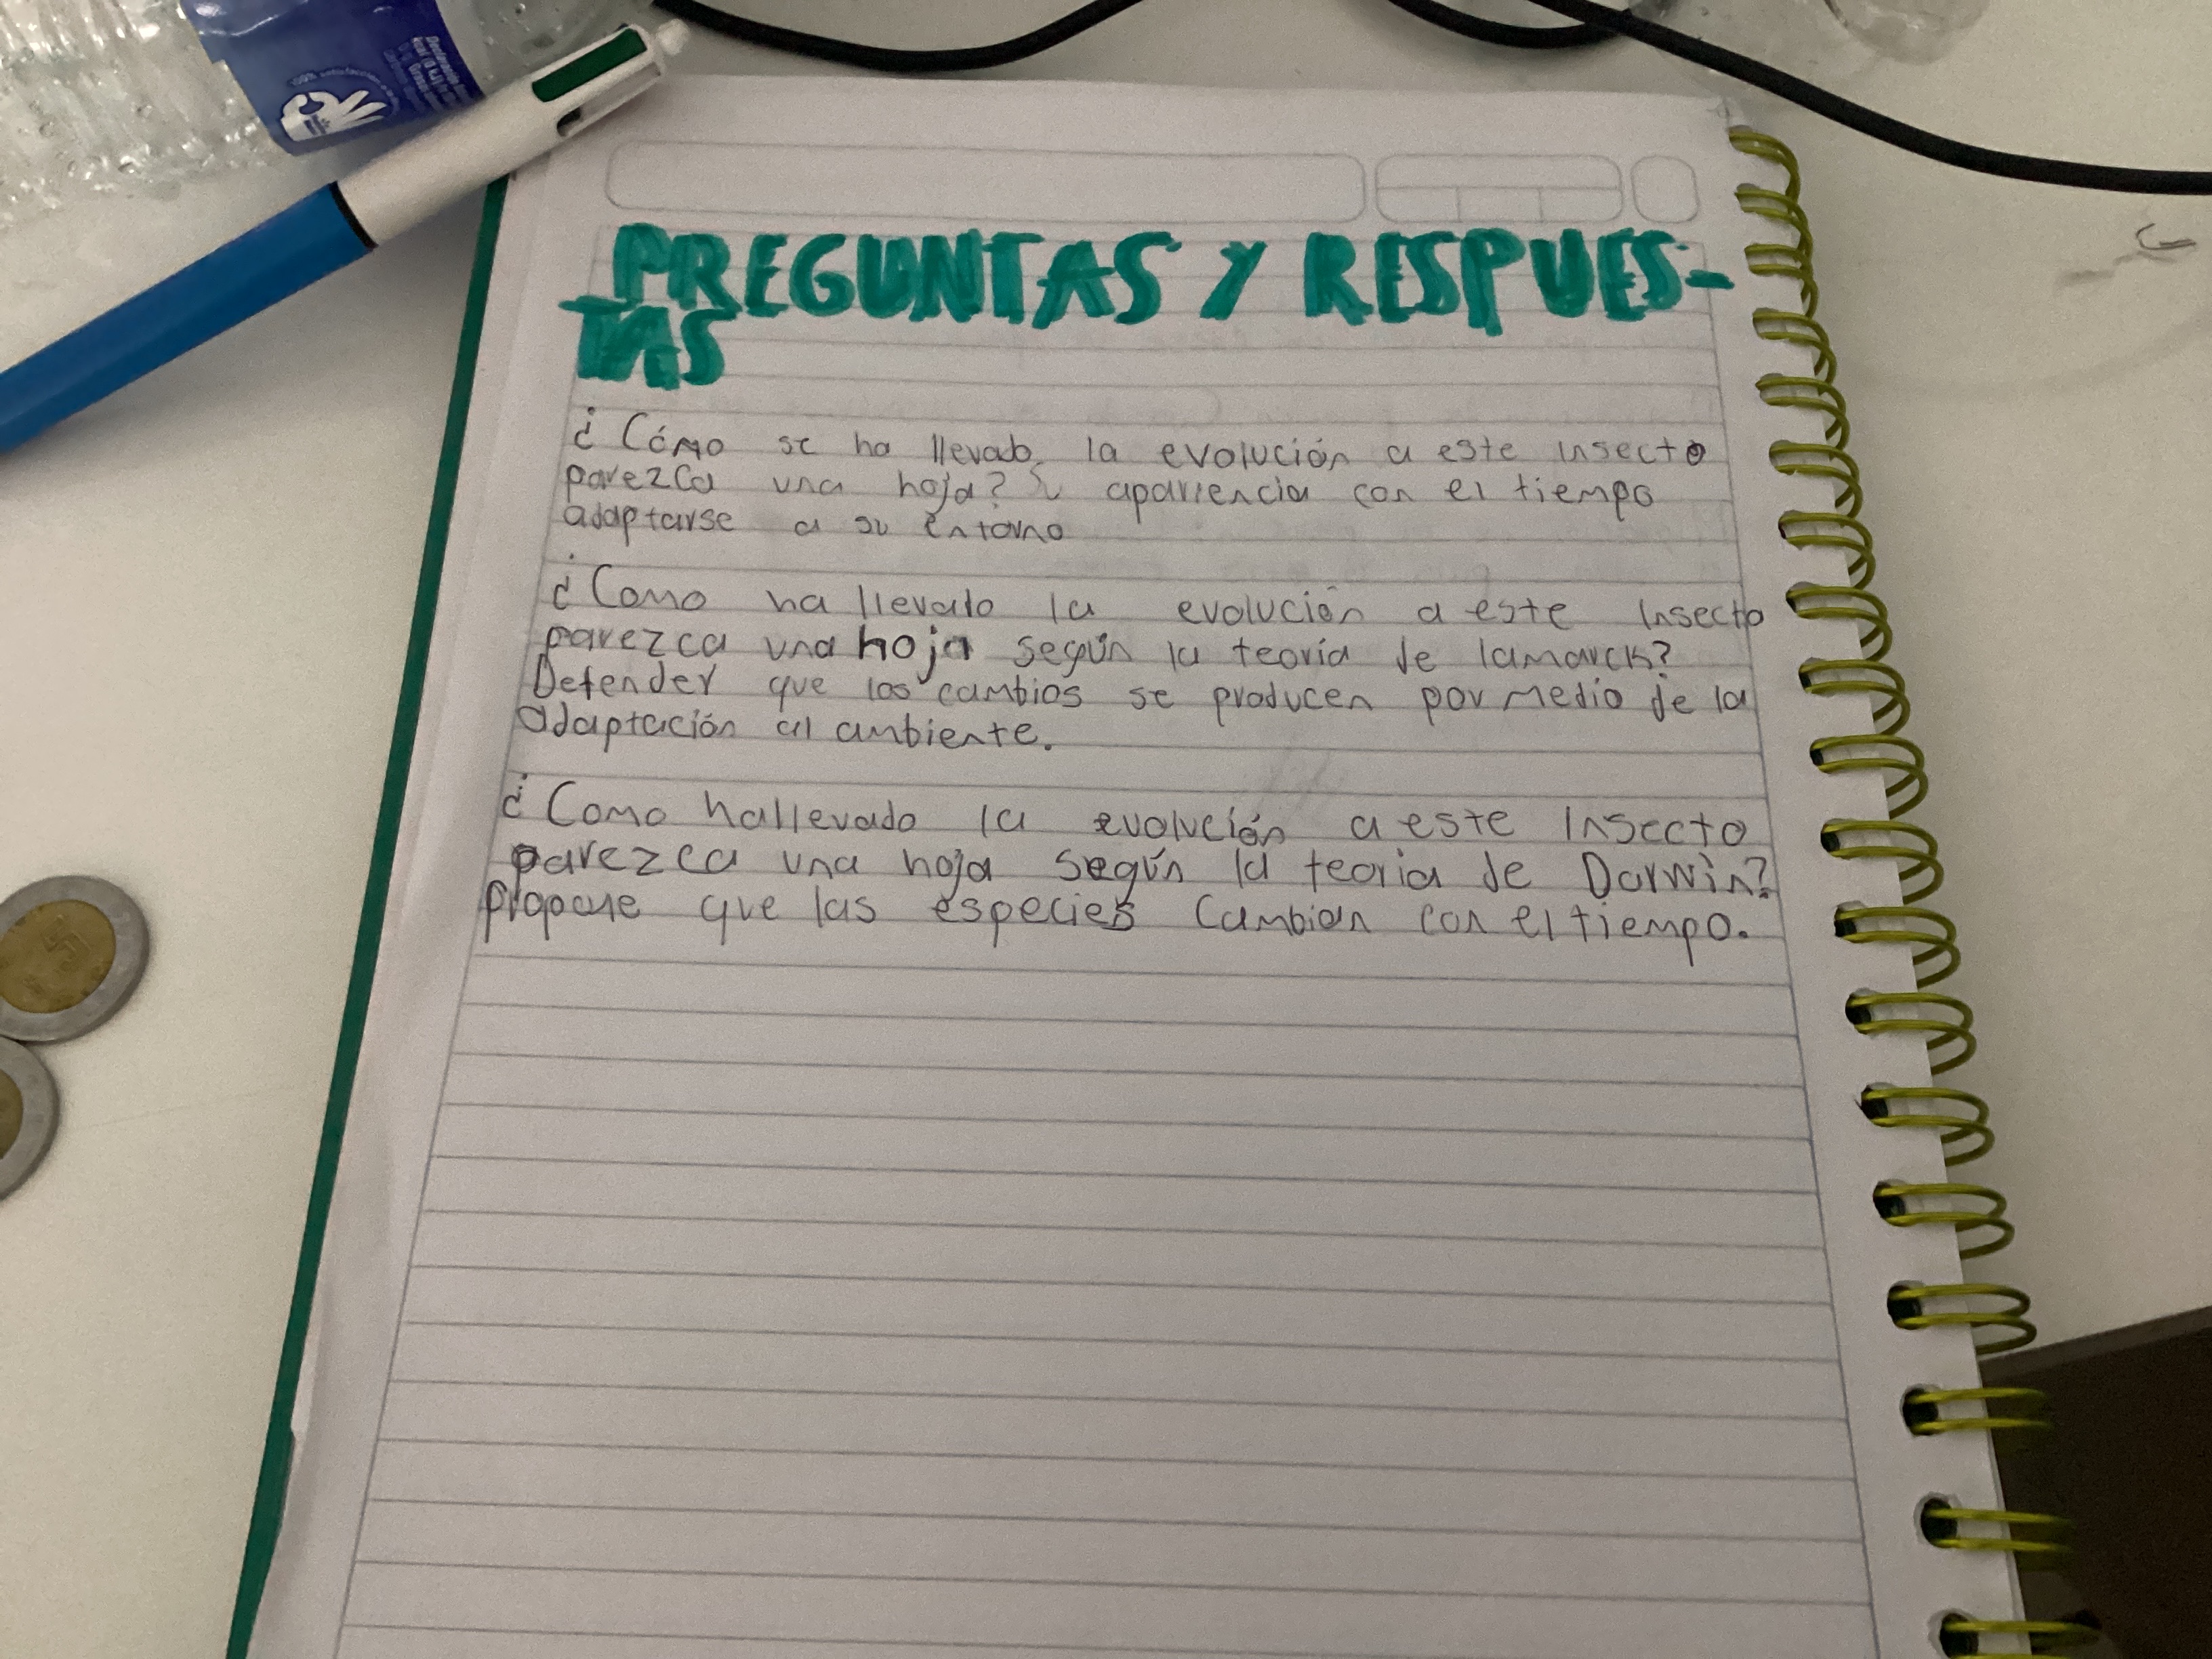 PREGUNTAS Y RESPUES-
TAS
¿Cómo se ha llevado la evolución a este insecto
parezca una hoja? apariencia con el tiempo
adaptarse a su entorno
¿Como ha llevado la evolución a este Insecto
parezca una hoja según la teoría de lamarck?
Defender que los cambios se producen por medio de la
adaptación al ambiente.
¿Como hallevado la evolución a este Insecto
parezca una hoja según la teoria de Darwin?
Propone que las especies Cambian con el tiempo.